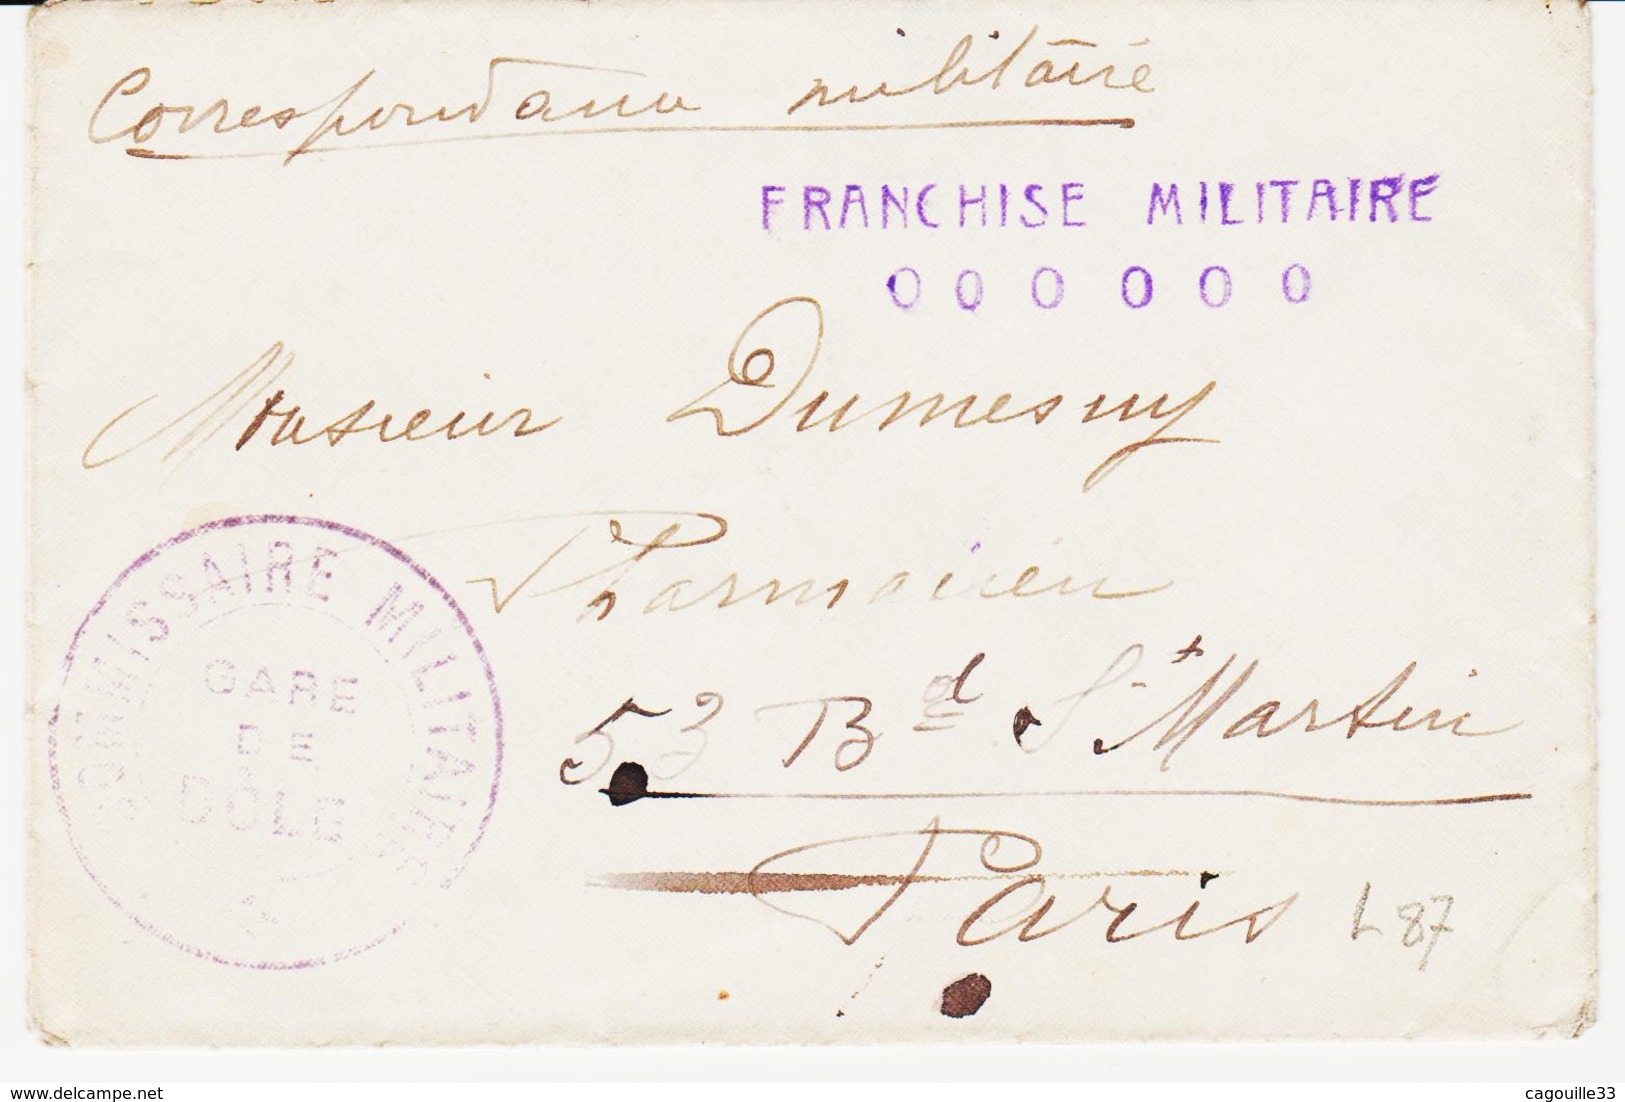 Correspondance militaire
FRANCHISE MILITAIRE
0 0 0 0 0 0
Monsieur Dumesny
Pharmacien
53 Bd St Martin
Paris
L 87
COMMISSAIRE MILITAIRE
GARE
DE
DOLE
www.delcampe.net
cagouille33